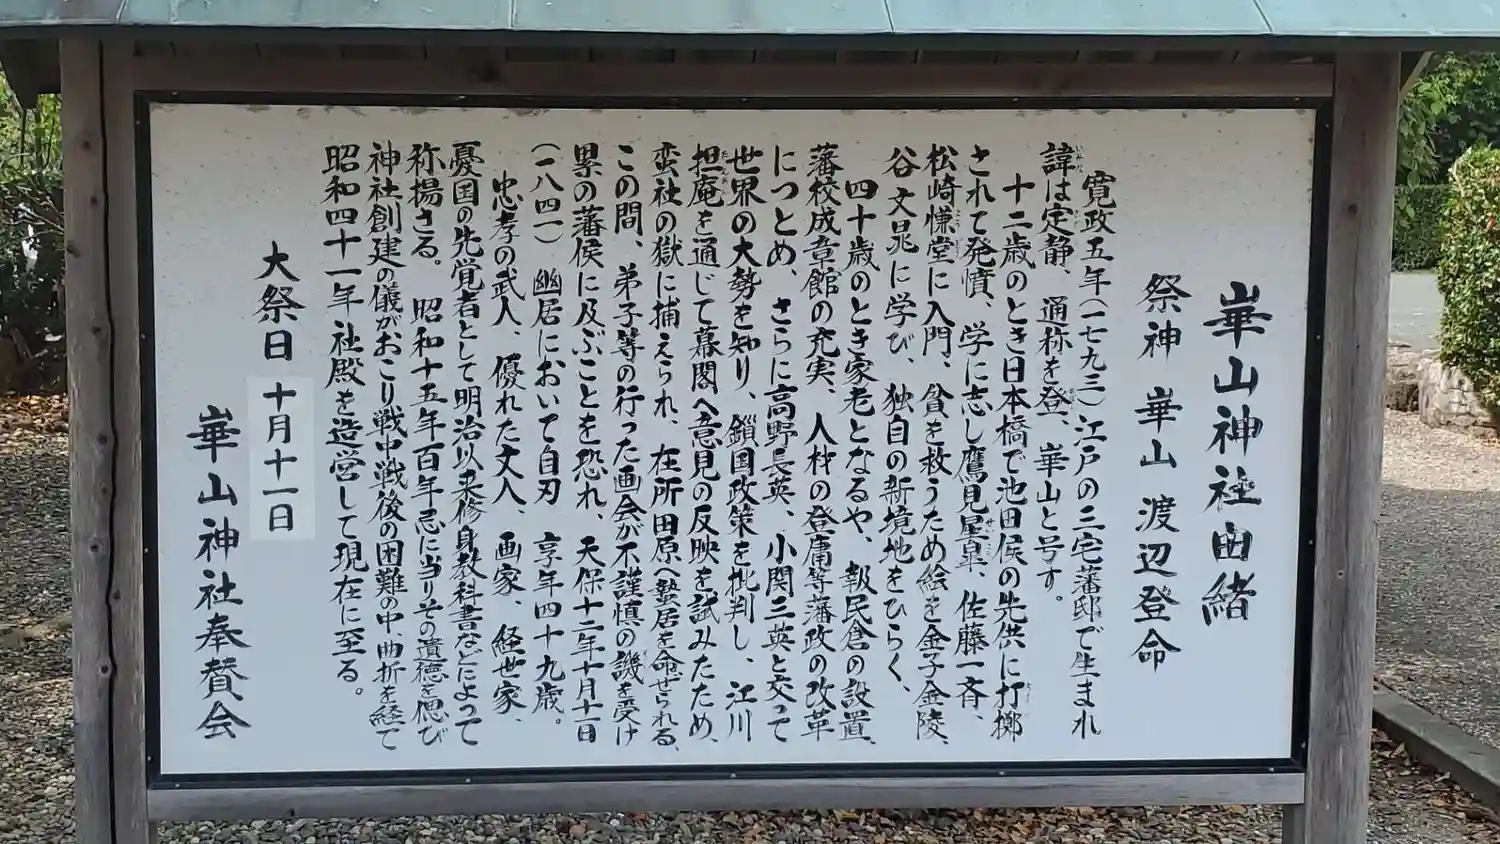 崋山神社由緒
祭神 崋山 渡辺登命
寛政五年(一七九三)江戸の三宅藩邸で生まれ
諱は定静、通称を登、崋山と号す。
十二歳のとき日本橋で池田侯の先供に打擲
されて発憤、学に志し鷹見星皐、佐藤一斉、
松崎慊堂に入門、貧を救うため絵を金子金陵、
谷文晁に学び、独自の新境地をひらく、
四十歳のとき家老となるや、報民倉の設置、
藩校成章館の充実、人材の登庸等藩政の改革
につとめ、さらに高野長英、小関三英と交って
世界の大勢を知り、鎖国政策を批判し、江川
担庵を通じて幕閣へ意見の反映を試みたため、
蛮社の獄に捕えられ、在所田原へ蟄居を命ぜられる、
この間、弟子等の行った画会が不謹慎の譏を受け
累の藩侯に及ぶことを恐れ、天保十二年十月十一日
(一八四一)幽居において自刃 享年四十九歳。
忠孝の武人、優れた文人、画家、経世家、
憂国の先覚者として明治以来修身教科書などによって
称揚さる。 昭和十五年百年忌に当りその遺徳を偲び
神社創建の儀がおこり戦中戦後の困難の中曲折を経て
昭和四十一年社殿を造営して現在に至る。
大祭日 十月十一日
崋山神社奉賛会